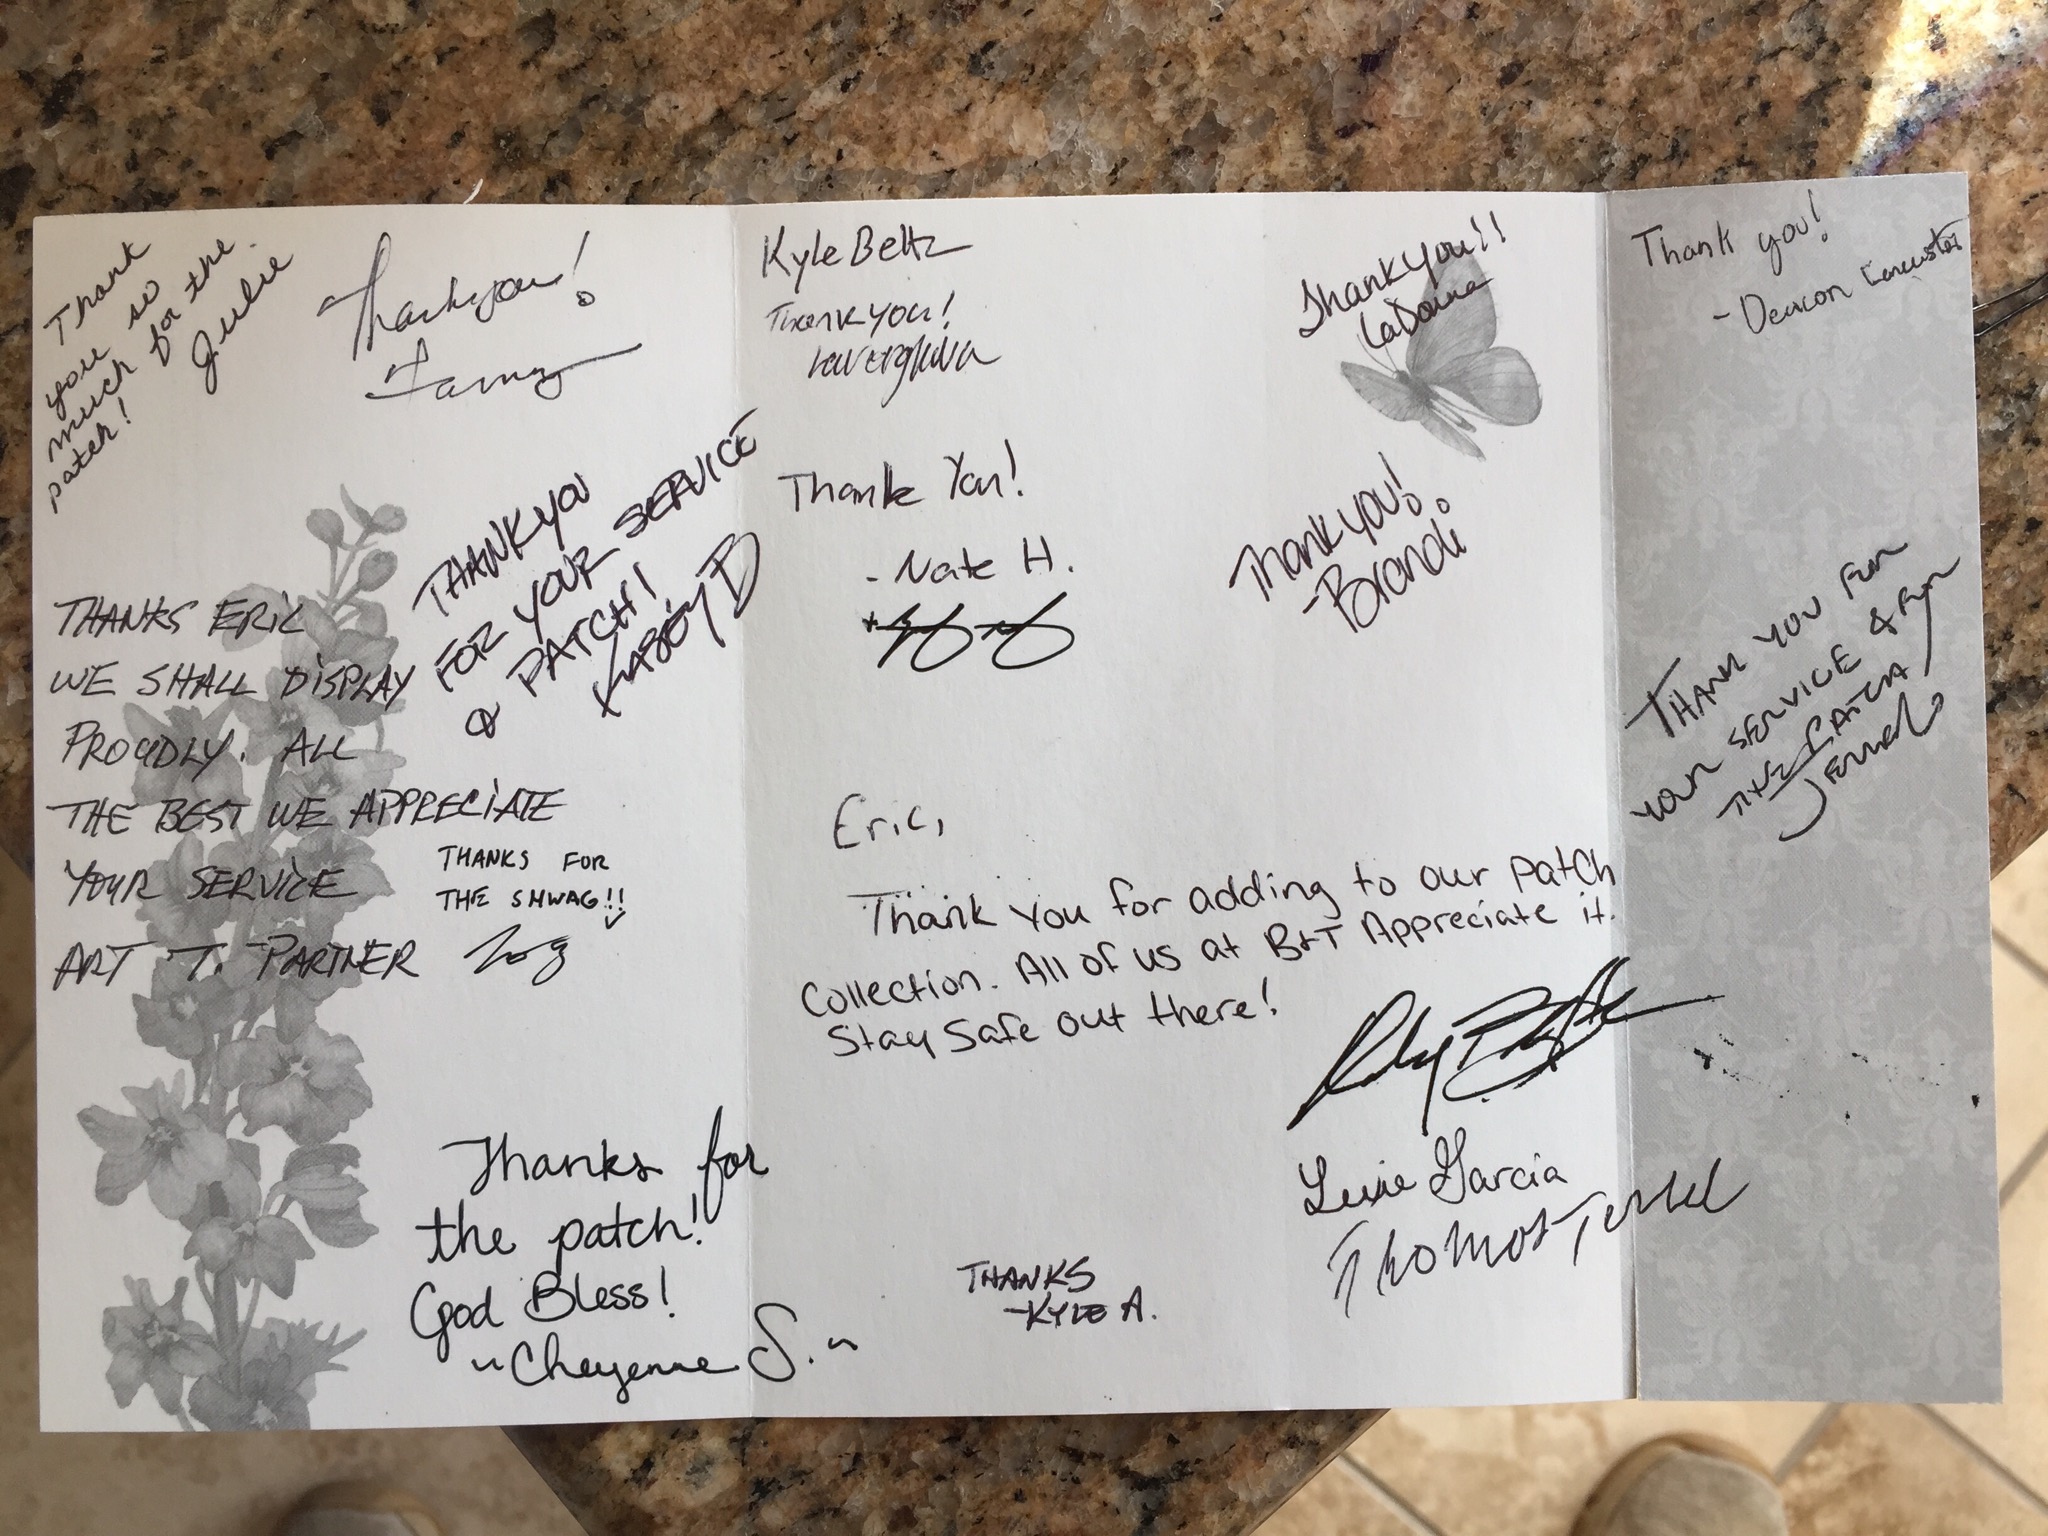 Thank
you so
much for the
patch!
Julie
Thank you!
THANK YOU
FOR YOUR SERVICE
& PATCH!
KASEY B
THANKS ERIC
WE SHALL DISPLAY
PROUDLY. ALL
THE BEST WE APPRECIATE
YOUR SERVICE
ART T. PARTNER
THANKS FOR
THE SHWAG!!
Thanks for
the patch!
God Bless!
~Cheyenne S.~
Kyle Beltz
Thank you!
Thank You!
- Nate H.
Thank you!!
LaDonna
Thank you!
-Brandi
Eric,
Thank you for adding to our patch
collection. All of us at B&T Appreciate it.
Stay safe out there!
Lexie Garcia
Thomas Terrel
THANKS
-KYLE A.
Thank you!
- Deacon Lancaster
THANK YOU FOR
YOUR SERVICE & FOR
THE PATCH